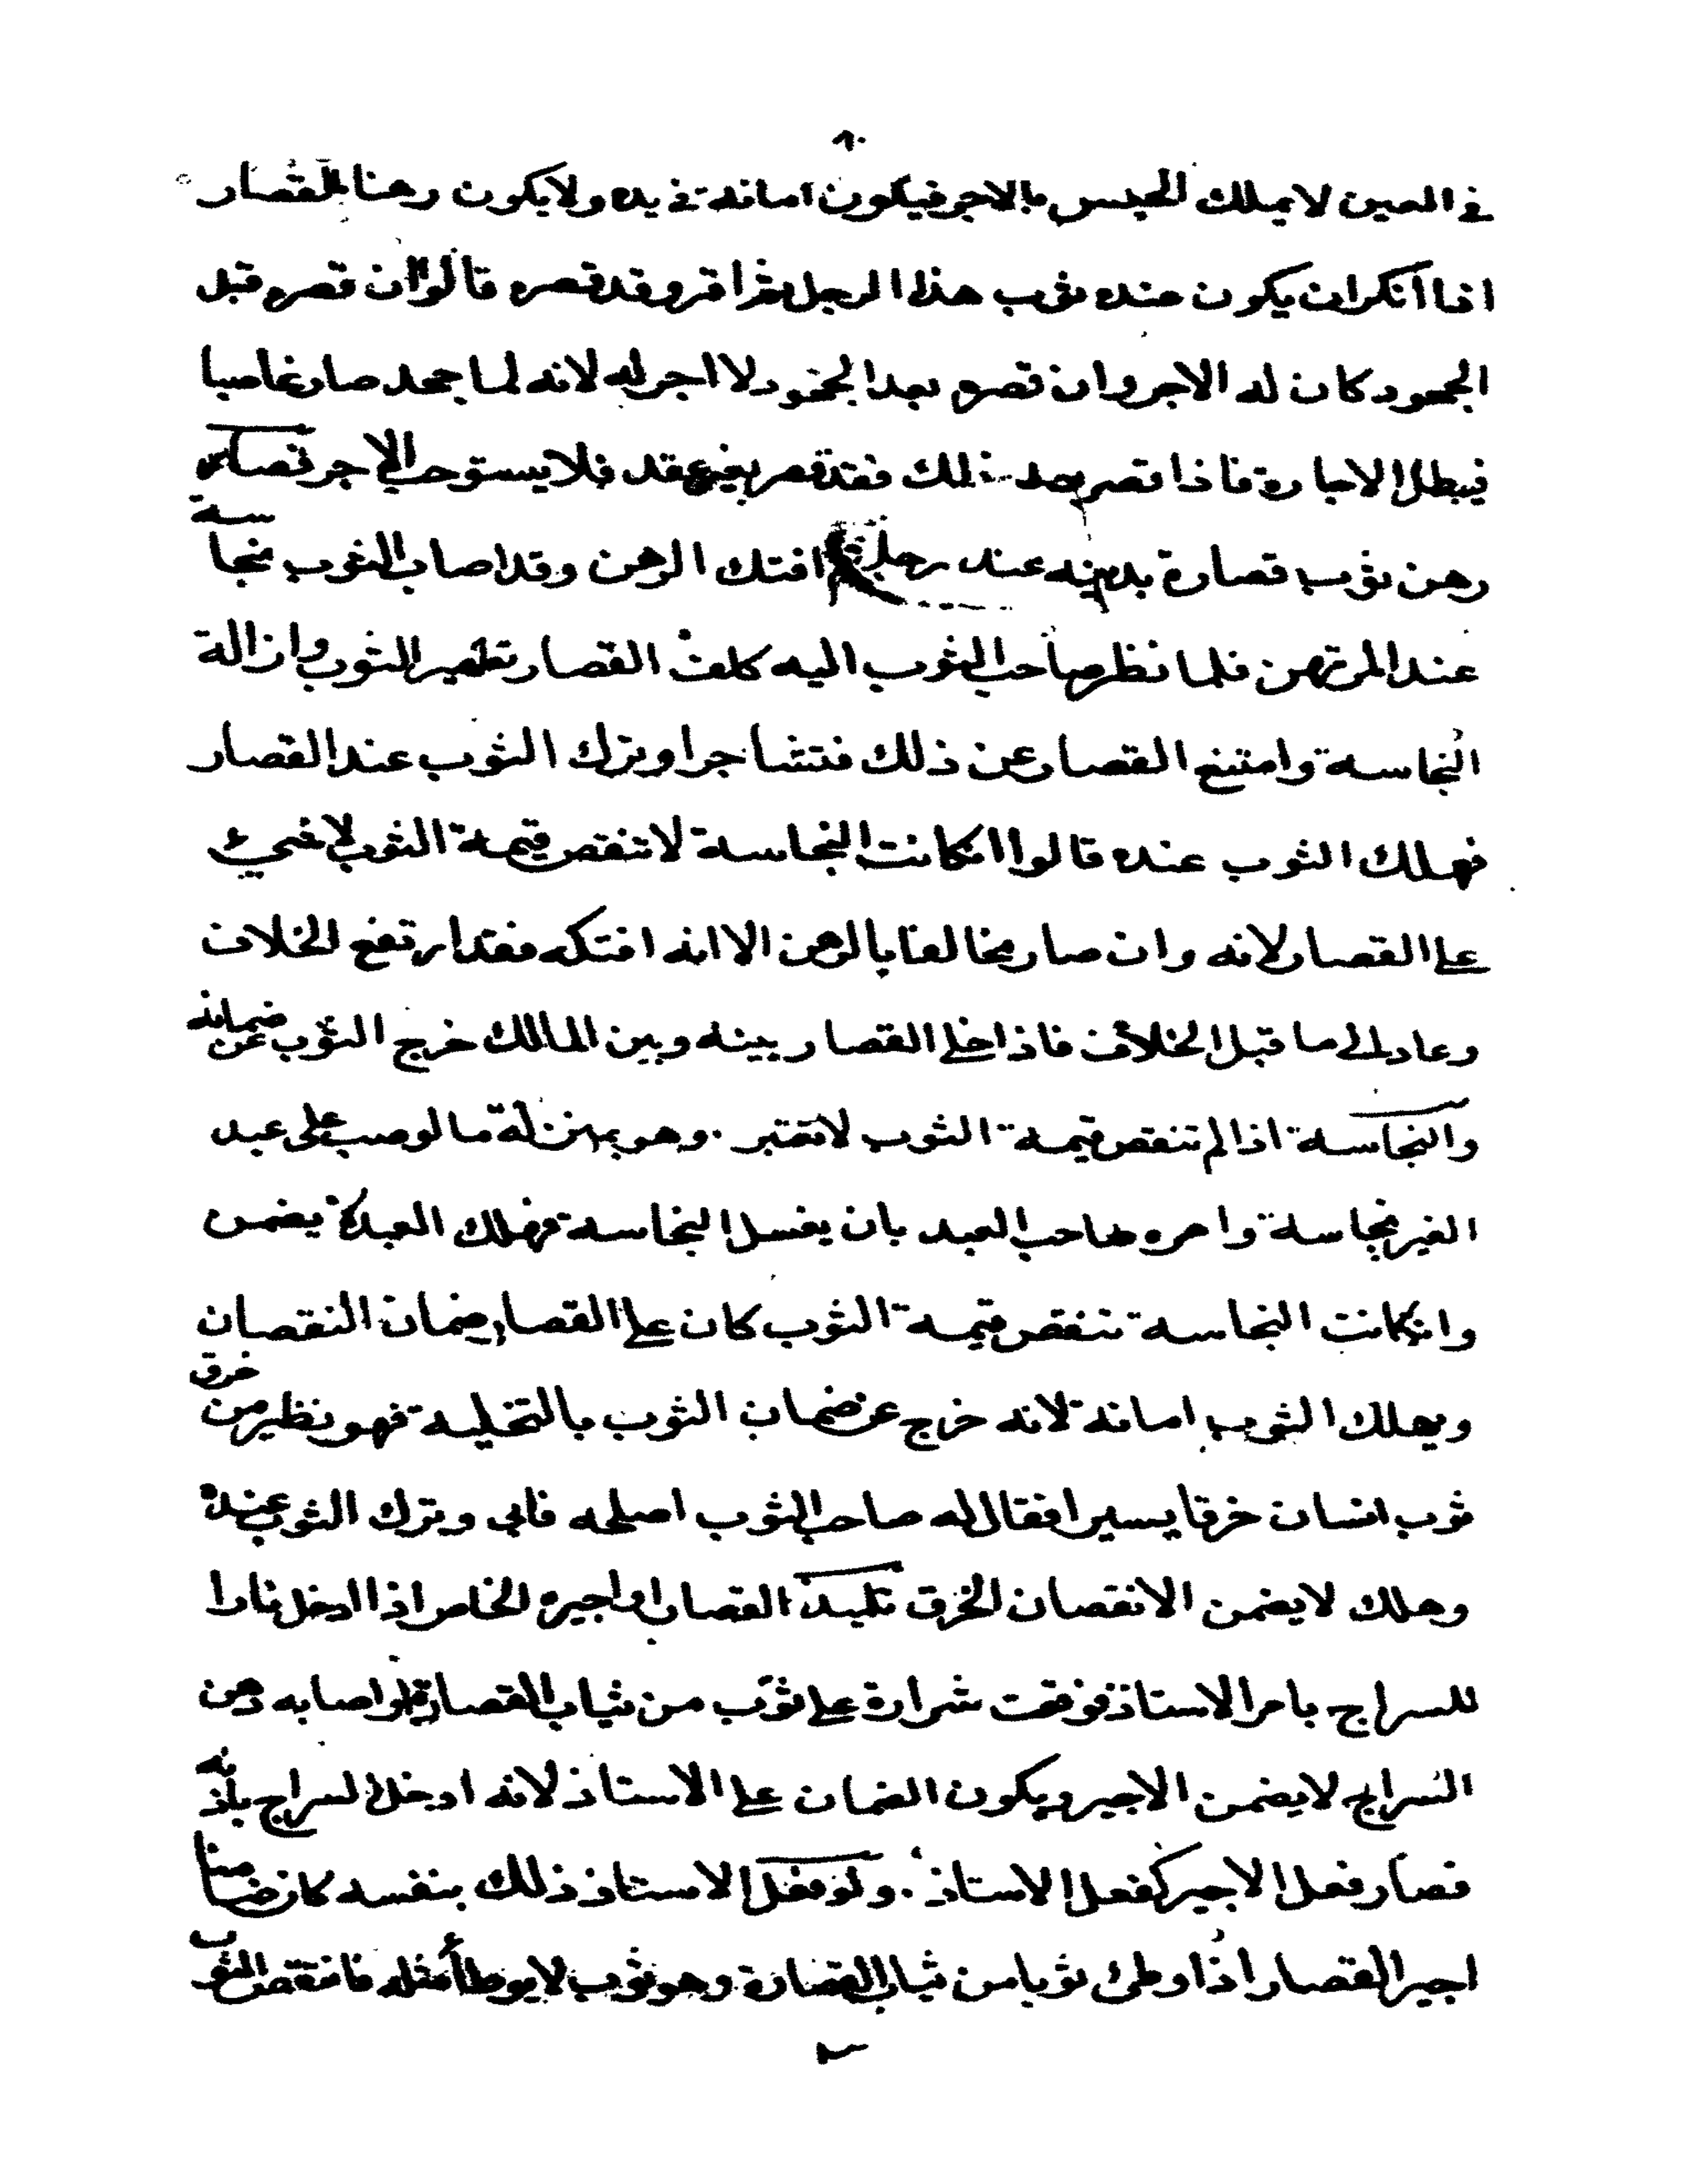 في المعين لا يملك الحبس بالاجر فيكون امانة في يده ولا يكون رهنا القصار
اذا انكر ان يكون عنده ثوب هذا الرجل ثم اقر وقد قصره قالوا ان قصره قبل
الجحود كان له الاجر وان قصره بعد الجحود لا اجر له لانه لما جحد صار غاصبا
فيبطل الاجارة فاذا قصر بعد ذلك فقد قصر بغير عقد فلا يستوجب الاجر قصار
رهن ثوب قصارة بدينه عند رجل ثم افتك الرهن وقد اصاب الثوب نجاسة
عند المرتهن فلما نظر صاحب الثوب اليه كلف القصار تطهير الثوب وازالة
النجاسة وامتنع القصار عن ذلك فتشاجرا وترك الثوب عند القصار
فهلك الثوب عنده قالوا انكانت النجاسة لا تنقص قيمة الثوب لا شيء
على القصار لانه وان صار مخالفا بالرهن الا انه افتكه فقد ارتفع الخلاف
وعاد الى ما قبل الخلاف فاذا خلى القصار بينه وبين المالك خرج الثوب عن ضمانه
والنجاسة اذا لم تنقص قيمة الثوب لا تعتبر . وهو بمنزلة ما لو صب على عبد
الغير نجاسة وامره صاحب العبد بان يغسل النجاسة فهلك العبد لا يضمن
وانكانت النجاسة تنقص قيمة الثوب كان على القصار ضمان النقصان
ويهلك الثوب امانة لانه خرج عن ضمان الثوب بالتخلية فهو نظير من خرق
ثوب انسان خرقا يسيرا فقال له صاحب الثوب اصلحه فابى وترك الثوب عنده
وهلك لا يضمن الا نقصان الخرق تلميذ القصار او اجيره الخاص اذا ادخل نارا
للسراج بامر الاستاذ فوقعت شرارة على ثوب من ثياب القصارة او اصابه دهن
السراج لا يضمن الاجير ويكون الضمان على الاستاذ لانه ادخل السراج باذنه
فصار فعل الاجير كفعل الاستاذ . ولو فعل الاستاذ ذلك بنفسه كان ضامنا
اجير القصار اذا وطئ ثوبا من ثياب القصارة وهو ثوب لا يوطأ مثله فانتقص الثوب